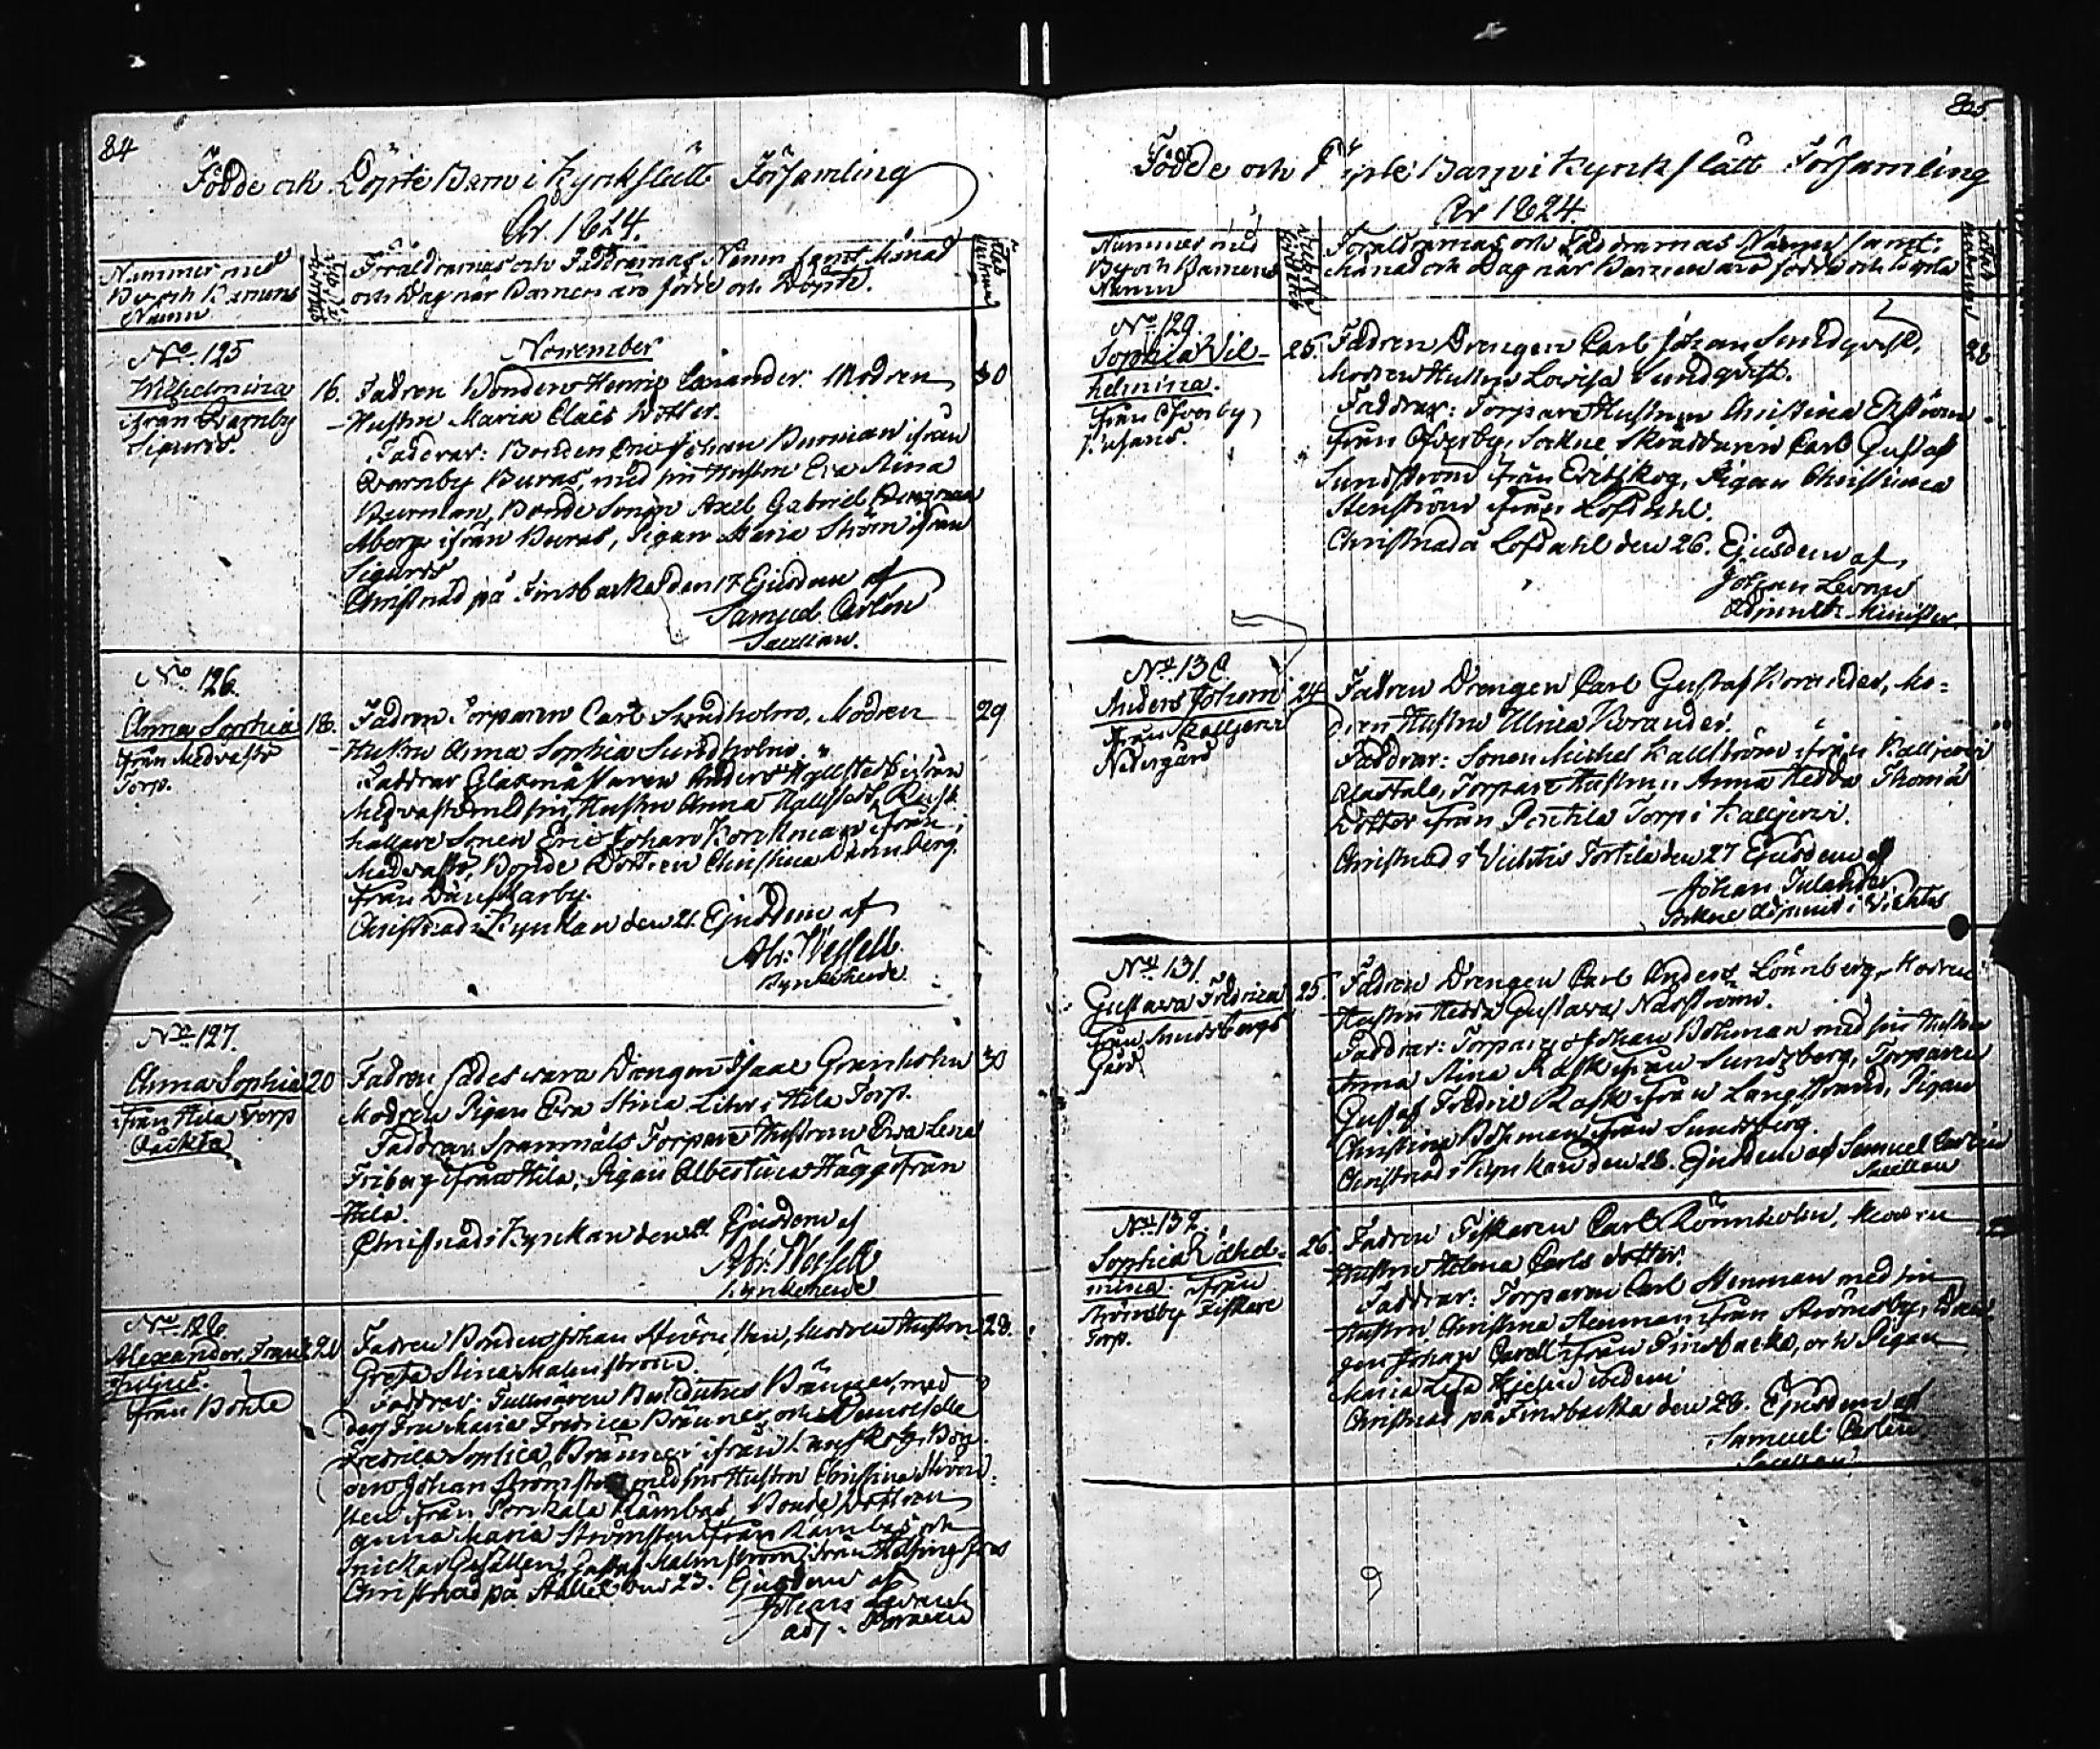 84
Födde och Döpte Barn i Kyrkslätt Församling
År 1824.
Nummer med
By och Barnens
Namn
Föräldrarnas och Faddrarnas Namn samt Månad
och Dag när Barnen äro födde och Döpte.
November
No 125
Wilhelmina
ifrån Qvarnby
Sigurds.
16.
Fadren Bonden Henric Modren
Hustru Maria Claës Dotter.
Faddrar: Bonden Eric Johan Burman ifrån
Qvarnby Buras, med sin Hustru Eva Stina
Burman, Bonde Sonen Axel Gabriel
Åberg ifrån Buras, Pigan Maria Ström ifrån
Sigurds
Christnad på Finsbacka den 17 Ejusdem af
Samuel Carlén
Sacellan.
30
No 126.
Anna Sophia
från Medvastö
Torp.
18.
Fadren Torparen Carl Sundholm, Modren
Hustru Anna Sophia Sundholm.
Faddrar Glasmästaren Anders ifrån
Medvastö med sin Hustru Anna
hållare Sonen Eric Johan ifrån
Medvastö, Bonde Dottren Christina
från Danskarby.
Christnad i Kyrkan den 21. Ejusdem af
Abr: Wessell
Kyrkoherde.
29
No 127.
Anna Sophia
ifrån Hila Torp
Oäkta
20
Fadren sades vara Drengen Isaac Granholm
Modren Pigan Eva Stina i Hila Torp.
Faddrar, Spannmåls Torpare Hustrun Eva Lena
Friberg ifrån Hila, Pigan Albertina Hägg ifrån
Hila.
Christnad i Kyrkan den 21 Ejusdem af
Abr: Wessell
Kyrkoherde
30
No 128.
Alexander Frans
Julius.
från Bohle
Fadren Bonden Johan Strömsten, Modren Hustru
Greta Stina Malmström.
Faddrar: Tullnären Benedictus Bränner, med
dess Fru Maria Fredrica Bränner, och Demoiselle
Fredrica Sophia Bränner ifrån
den Johan Strömsten med sin Hustru Christina Ström-
sten ifrån Porkala Rambas, Bonde Dottren
Anna Maria Strömsten från Rambas och
Snickar Gesällen Gustaf Malmström ifrån Helsingfors
Christnad på Stället den 23. Ejusdem af
Johan
adj.
28.
85
Födde och Döpte Barn i Kyrkslätt Församling
År 1824.
Nummer med
By och Barnens
Namn
Föräldrarnas och Faddrarnas Namn samt
Månad och Dag när Barnen äro födde och Döpte
No 129.
Sophia Wil-
helmina.
från Öfverby,
26.
Fadren Drengen Carl Johan Sundqvist,
Modren Hustru Lovisa Sundqvist.
Faddrar: Torpare Hustrun Christina Ekström
från Öfverby, Sockne Skräddaren Carl Gustaf
Sundström från Evitskog, Pigan Christina
Stenström från Lofdahl.
Christnad å Lofdahl den 26. Ejusdem af
Johan
Adjunct. Minister.
28
No 130.
Anders Johan
från Kalljervi
Nedergård
24
Fadren Drengen Carl Gustaf Korander, Mo-
dren Hustru Ulrica Korander.
Faddrar: Sonen Michel Källström ifrån Kalljervi
Torpare Hustrun Anna Hedda Thomæ
Dotter ifrån Pentila Torp i Kalljervi.
Christnad i Vichtis Tortila den 27 Ejusdem af
Johan Inlander
Sockne Adjunct i Vichtis
No 131.
Gustava Fredrica
från Sundsbergs
Gård
25.
Fadren Drengen Carl Anders Lönnberg, Modren
Hustru Hedda Gustava Näsström.
Faddrar: Torparen Johan Böhman med sin Hustru
Anna Stina Rask ifrån Sundsberg, Torparen
Gustaf Fredric Rask ifrån Långstrand, Pigan
Christina Böhman från Sundsberg
Christnad i Kyrkan den 28. Ejusdem af Samuel Carlén
Sacellan
No 132.
Sophia Wilhel-
mina från
Strömsby Fiskare
Torp.
26.
Fadren Fiskaren Carl Rönnholm, Modren
Hustru Helena Carls dotter.
Faddrar: Torparen Carl Stenman med sin
Hustru Christina Stenman från Strömsby, Dren
gen Johan ifrån Finsbacka, och Pigan
Maria Lisa ibidem
Christnad på Finsbacka den 28. Ejusdem af
Samuel Carlén.
Sacellan.